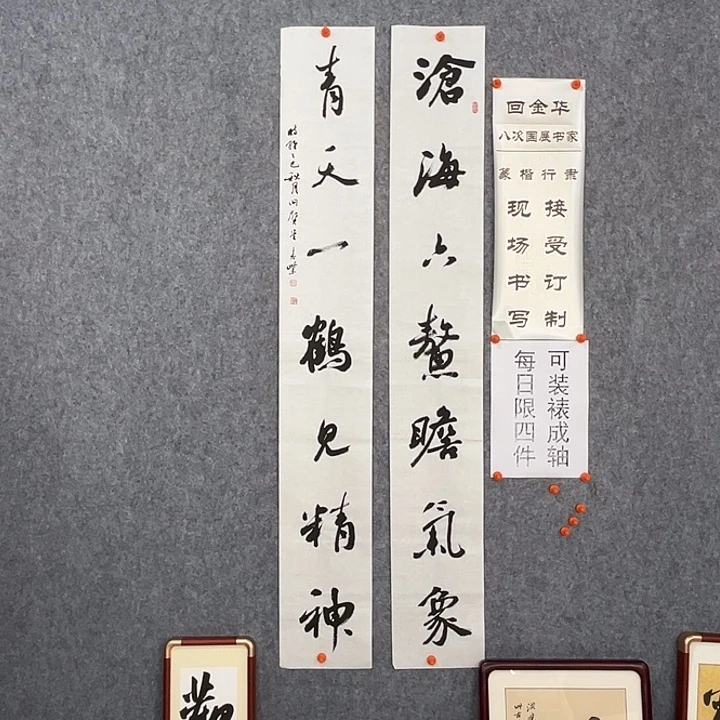 滄海六鰲瞻氣象
青天一鶴見精神
乙巳秋月
回金华
八次国展书家
篆楷行隶
接受订制
现场书写
可装裱成轴
每日限四件